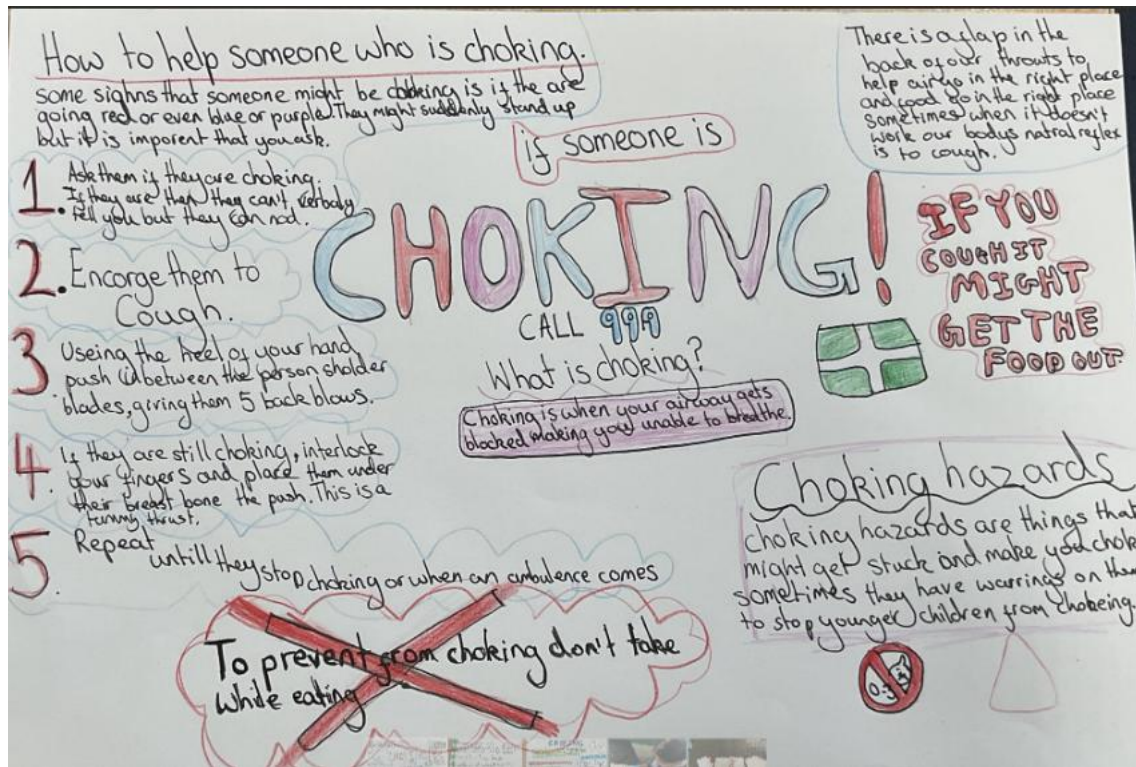 How to help someone who is choking.
some sighns that someone might be choking is if the are
going red or even blue or purple. They might suddenly stand up
but it is imporent that you ask.
1. Ask them if they are choking.
If they are then they can't, verbaly
tell you but they can nod.
2. Encorge them to
Cough.
3 Useing the heel of your hand
push in between the person sholder
blades, giving them 5 back blows.
4. If they are still choking, interlock
your fingers and place them under
their breast bone the push. This is a
tummy thrust.
5. Repeat untill they stop choking or when an ambulence comes
if someone is
CHOKING!
CALL 999
What is choking?
Choking is when your airway gets
blocked making you unable to breathe.
To prevent from choking don't take
while eating
There is a flap in the
back of our throuts to
help air go in the right place
and food go in the right place
sometimes when it doesn't
work our bodys natral reflex
is to cough.
IF YOU
COUGH IT
MIGHT
GET THE
FOOD OUT
Choking hazards
choking hazards are things that
might get stuck and make you choke
sometimes they have warrings on them
to stop younger children from chokeing.
0-3